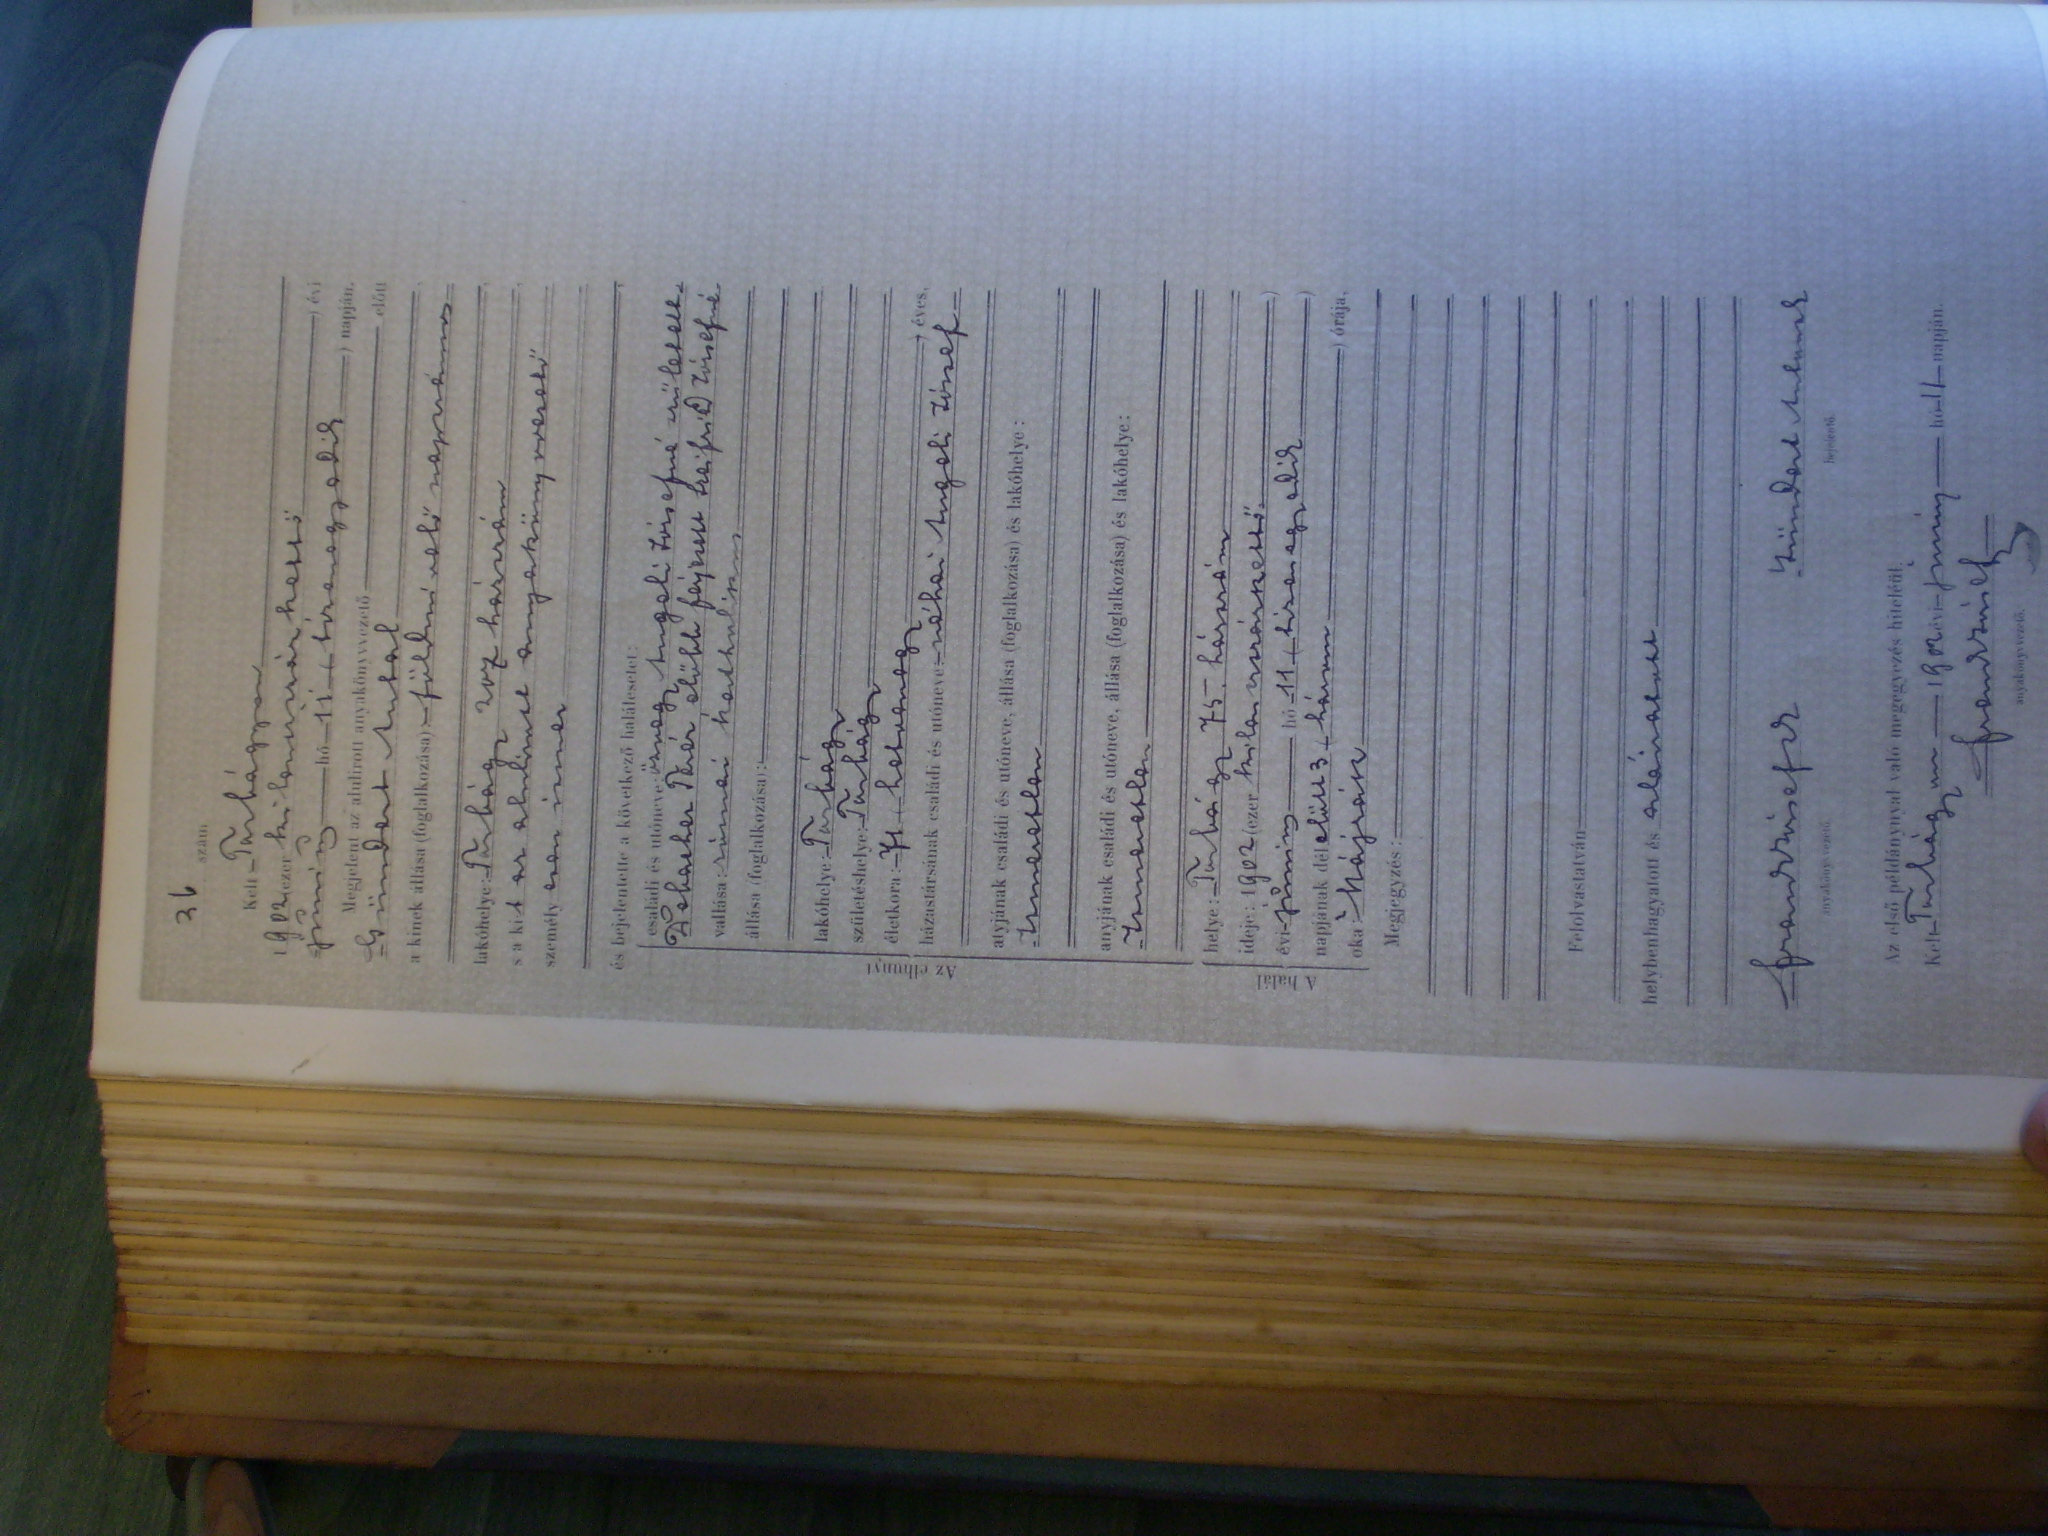 36 szám
Kelt Tarhágyon
1902 (ezer kilencszázkettő) évi
június hó 11 (tizenegyedik) napján.
Megjelent az alulirott anyakönyvvezető előtt
Antal
a kinek állása (foglalkozása): földmivelő napszámos
lakóhelye: 207 házszám
s a kit az alulirott anyakönyvvezető
személyesen ismer
és bejelentette a következő halálesetet:
családi és utóneve: özvegy Angeli Józsefné született
Péter előbb férjezett Józsefné
vallása: római katholikus
állása (foglalkozása):
lakóhelye:
születéshelye:
életkora: 71 (hetvenegy) éves,
házastársának családi és utóneve: néhai Angeli József
atyjának családi és utóneve, állása (foglalkozása) és lakóhelye:
Ismeretlen
anyjának családi és utóneve, állása (foglalkozása) és lakóhelye:
Ismeretlen
Az elhunyt
helye: 75. házszám
ideje: 1902 (ezer kilencszázkettő)
évi június hó 11 (tizenegyedik)
napjának délelőtt 3 (három) órája,
oka: Májrák
A halál
Megjegyzés:
Felolvastatván
helybenhagyatott és aláiratott
anyakönyvvezető
bejelentő.
Az első példánynyal való megegyezés hiteléül.
Kelt 1902 évi június hó 11 napján.
anyakönyvvezető.